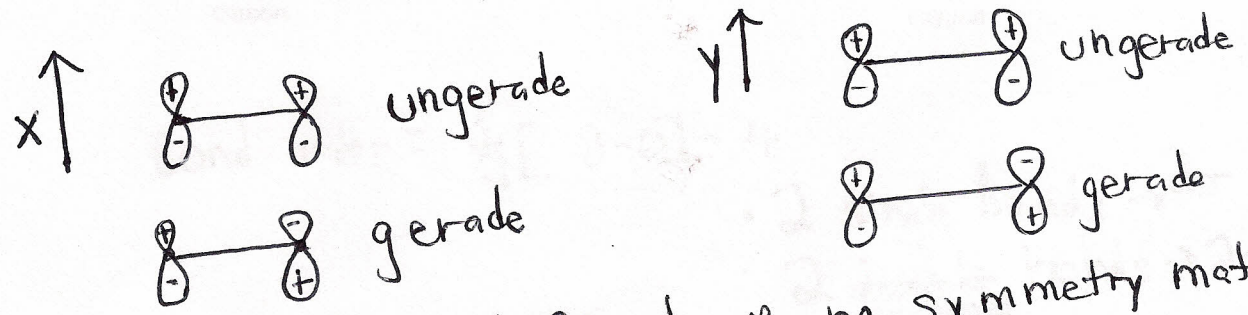 X + + ungerade
- -
+ - gerade
- +
Y + + ungerade
- -
+ - gerade
- +
symmetry mat